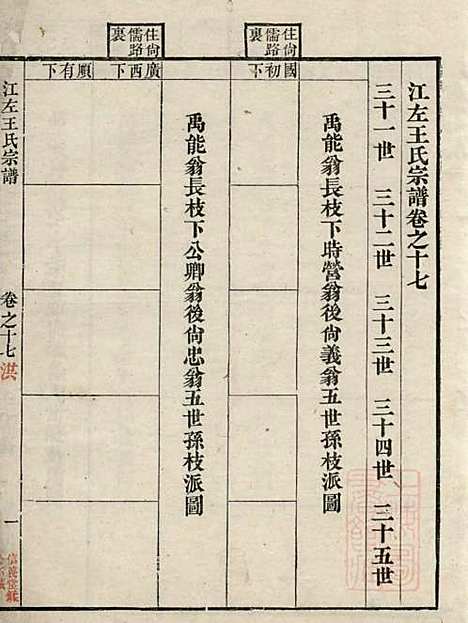 江左王氏宗譜卷之十七
三十一世 三十二世 三十三世 三十四世 三十五世
禹能翁長枝下時營翁後尙義翁五世孫枝派圖
住尙儒路裏
國初下
禹能翁長枝下公卿翁後尙忠翁五世孫枝派圖
住尙儒路裏
廣西下
順有下
江左王氏宗譜
卷之十七
洪
一